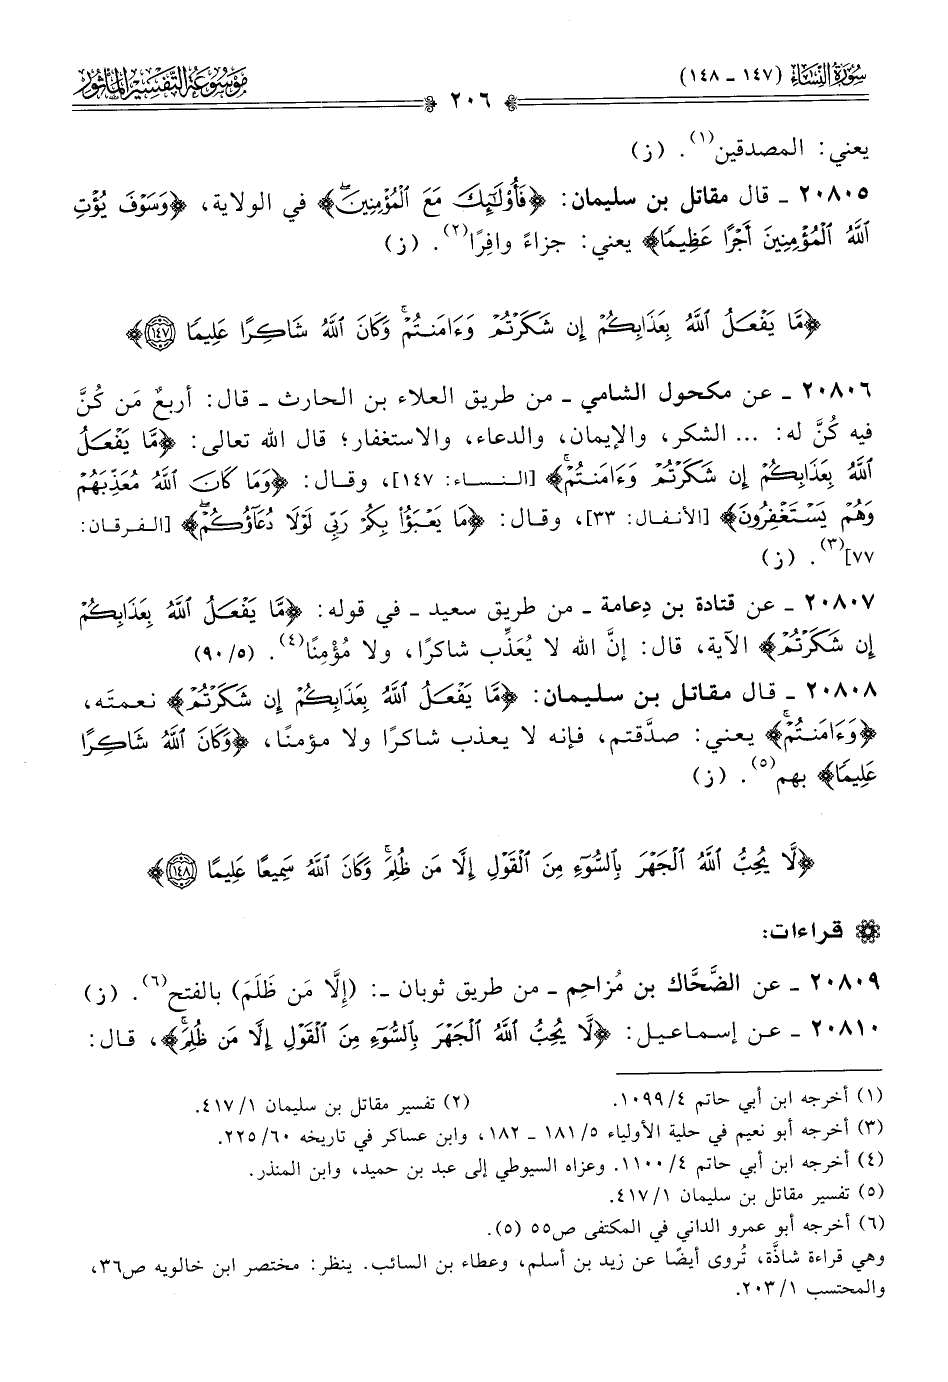 سورة النساء (١٤٧ - ١٤٨)
موسوعة التفسير المأثور
٢٠٦
يعني: المصدقين(١). (ز)
٢٠٨٠٥ - قال مقاتل بن سليمان: ﴿فَأُوْلَٰٓئِكَ مَعَ ٱلْمُؤْمِنِينَۖ﴾ في الولاية، ﴿وَسَوْفَ يُؤْتِ
ٱللَّهُ ٱلْمُؤْمِنِينَ أَجْرًا عَظِيمًا﴾ يعني: جزاءً وافِرًا(٢). (ز)
﴿مَّا يَفْعَلُ ٱللَّهُ بِعَذَابِكُمْ إِن شَكَرْتُمْ وَءَامَنتُمْۚ وَكَانَ ٱللَّهُ شَاكِرًا عَلِيمًا ١٤٧﴾
٢٠٨٠٦ - عن مكحول الشامي - من طريق العلاء بن الحارث - قال: أربعٌ مَن كُنَّ
فيه كُنَّ له: ... الشكر، والإيمان، والدعاء، والاستغفار؛ قال الله تعالى: ﴿مَّا يَفْعَلُ
ٱللَّهُ بِعَذَابِكُمْ إِن شَكَرْتُمْ وَءَامَنتُمْۚ﴾ [النساء: ١٤٧]، وقال: ﴿وَمَا كَانَ ٱللَّهُ مُعَذِّبَهُمْ
وَهُمْ يَسْتَغْفِرُونَ﴾ [الأنفال: ٣٣]، وقال: ﴿مَا يَعْبَؤُاْ بِكُمْ رَبِّى لَوْلَا دُعَآؤُكُمْۖ﴾ [الفرقان:
٧٧](٣). (ز)
٢٠٨٠٧ - عن قتادة بن دِعامة - من طريق سعيد - في قوله: ﴿مَّا يَفْعَلُ ٱللَّهُ بِعَذَابِكُمْ
إِن شَكَرْتُمْ﴾ الآية، قال: إنَّ الله لا يُعَذِّب شاكرًا، ولا مُؤْمِنًا(٤). (٩٠/٥)
٢٠٨٠٨ - قال مقاتل بن سليمان: ﴿مَّا يَفْعَلُ ٱللَّهُ بِعَذَابِكُمْ إِن شَكَرْتُمْ﴾ نعمته،
﴿وَءَامَنتُمْۚ﴾ يعني: صدَّقتم، فإنه لا يعذب شاكرًا ولا مؤمنًا، ﴿وَكَانَ ٱللَّهُ شَاكِرًا
عَلِيمًا﴾ بهم(٥). (ز)
﴿لَّا يُحِبُّ ٱللَّهُ ٱلْجَهْرَ بِٱلسُّوٓءِ مِنَ ٱلْقَوْلِ إِلَّا مَن ظُلِمَۚ وَكَانَ ٱللَّهُ سَمِيعًا عَلِيمًا ١٤٨﴾
قراءات:
٢٠٨٠٩ - عن الضَّحَّاك بن مُزاحِم - من طريق ثوبان -: (إِلَّا مَن ظَلَمَ) بالفتح(٦). (ز)
٢٠٨١٠ - عن إسماعيل: ﴿لَّا يُحِبُّ ٱللَّهُ ٱلْجَهْرَ بِٱلسُّوٓءِ مِنَ ٱلْقَوْلِ إِلَّا مَن ظُلِمَۚ﴾، قال:
(١) أخرجه ابن أبي حاتم ١٠٩٩/٤. (٢) تفسير مقاتل بن سليمان ٤١٧/١.
(٣) أخرجه أبو نعيم في حلية الأولياء ١٨١/٥ - ١٨٢، وابن عساكر في تاريخه ٢٢٥/٦٠.
(٤) أخرجه ابن أبي حاتم ١١٠٠/٤. وعزاه السيوطي إلى عبد بن حميد، وابن المنذر.
(٥) تفسير مقاتل بن سليمان ٤١٧/١.
(٦) أخرجه أبو عمرو الداني في المكتفى ص٥٥ (٥).
وهي قراءة شاذَّة، تُروى أيضًا عن زيد بن أسلم، وعطاء بن السائب. ينظر: مختصر ابن خالويه ص٣٦،
والمحتسب ٢٠٣/١.